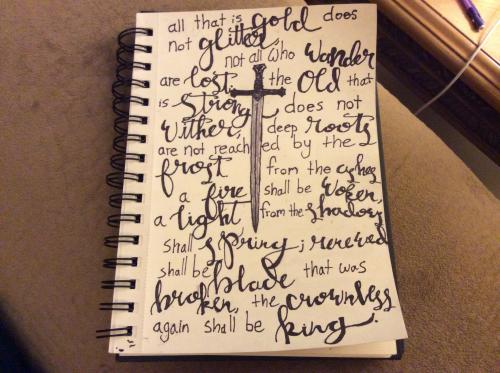 all that is gold does
not glitter,
not all who wander
are lost. the old that
is strong does not
wither, deep roots
are not reached by the
frost from the ashes
a fire shall be woken,
a light from the shadows
shall spring; renewed
shall be blade that was
broken, the crownless
again shall be king.